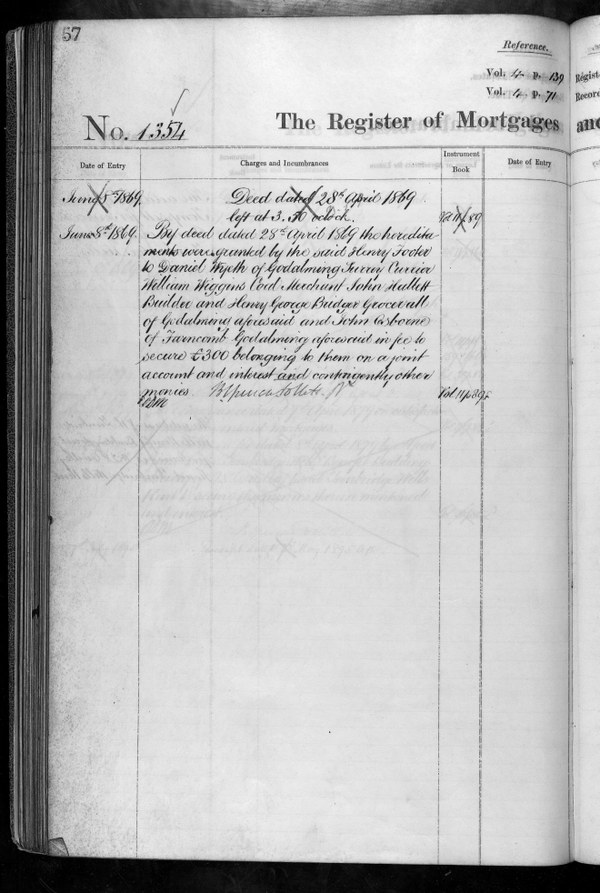 57
Reference.
Vol. 4 p. 139
Vol. 4 p. 71
No. 1354
The Register of Mortgages
and
Regist
Record
Date of Entry
Charges and Incumbrances
Instrument Book
Date of Entry
June 5th 1869
Deed dated 28th April 1869
left at 3.30 oclock.
Vol 11 p 89
June 8th 1869.
By deed dated 28th April 1869 the heredita-
ments were granted by the said Henry Foster
to Daniel Wyeth of Godalming Surrey Currier
William Wiggins Coal Merchant John Hallett
Builder and Henry George Bridger Grocer all
of Godalming aforesaid and John Osborne
of Farncomb Godalming aforesaid in fee to
secure £300 belonging to them on a joint
account and interest and contingently other
monies.
Vol 11 p 89